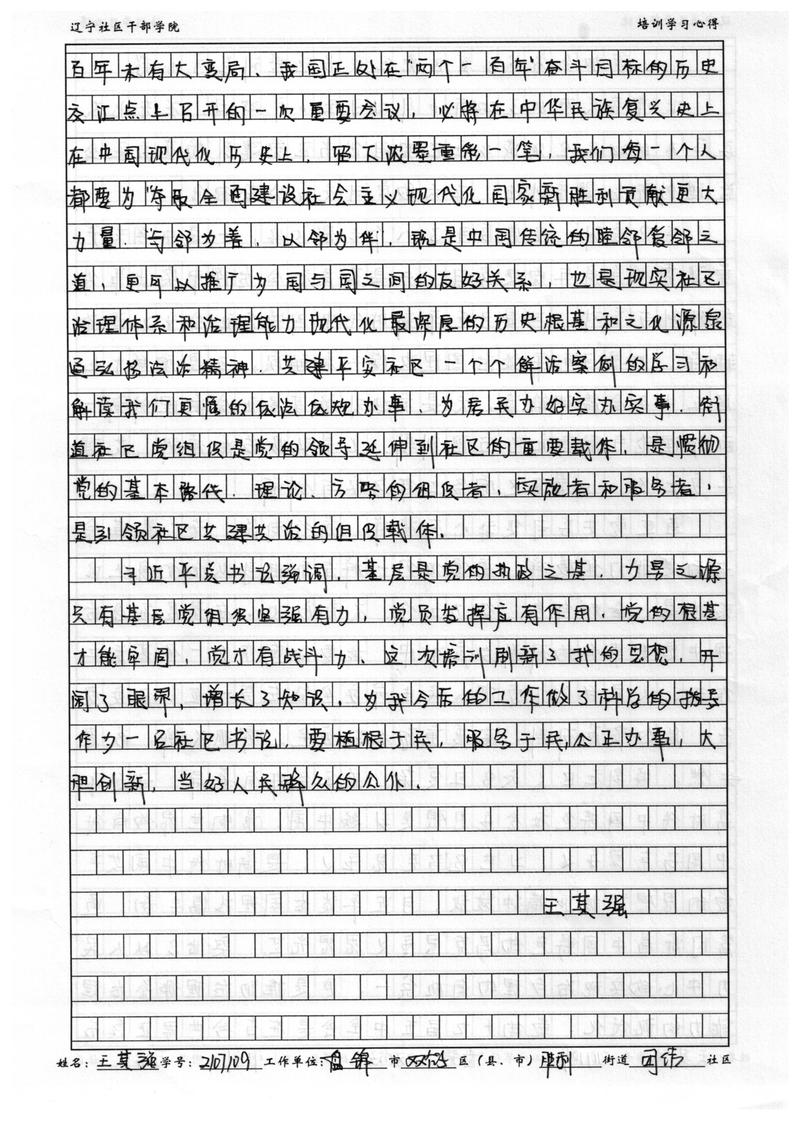 辽宁社区干部学院 培训学习心得
百年未有大变局、我国正处在“两个一百年”奋斗目标的历史
交汇点上召开的一次重要会议，必将在中华民族复兴史上
在中国现代化历史上，留下浓墨重彩一笔，我们每一个人
都要为夺取全面建设社会主义现代化国家新胜利贡献更大
力量。“与邻为善，以邻为伴”，既是中国传统的睦邻复邻之
道，更可以推广为国与国之间的友好关系，也是现实社区
治理体系和治理能力现代化最深厚的历史根基和文化源泉
通弘扬法治精神，共建平安社区一个个解法案例的学习和
解读我们更懂的依法依规办事、为居民办好实办实事。街
道社区党组织是党的领导延伸到社区的重要载体，是惯彻
党的基本路代、理论、方略的组织者，实施者和服务者，
是引领社区共建共治的组织载体。
习近平总书记强调，基层是党的执政之基，力量之源
只有基层党组织坚强有力，党员发挥应有作用，党的根基
才能牢固，党才有战斗力、这次培训刷新了我的思想，开
阔了眼界，增长了知识，为我今后的工作做了科学的指导
作为一名社区书记，要植根于民，服务于民，公正办事，大
胆创新，当好人民群众的公仆。
王其强
姓名：王其强 学号：2107109 工作单位：盘锦 市 双台子 区（县、市）胜利 街道 社区